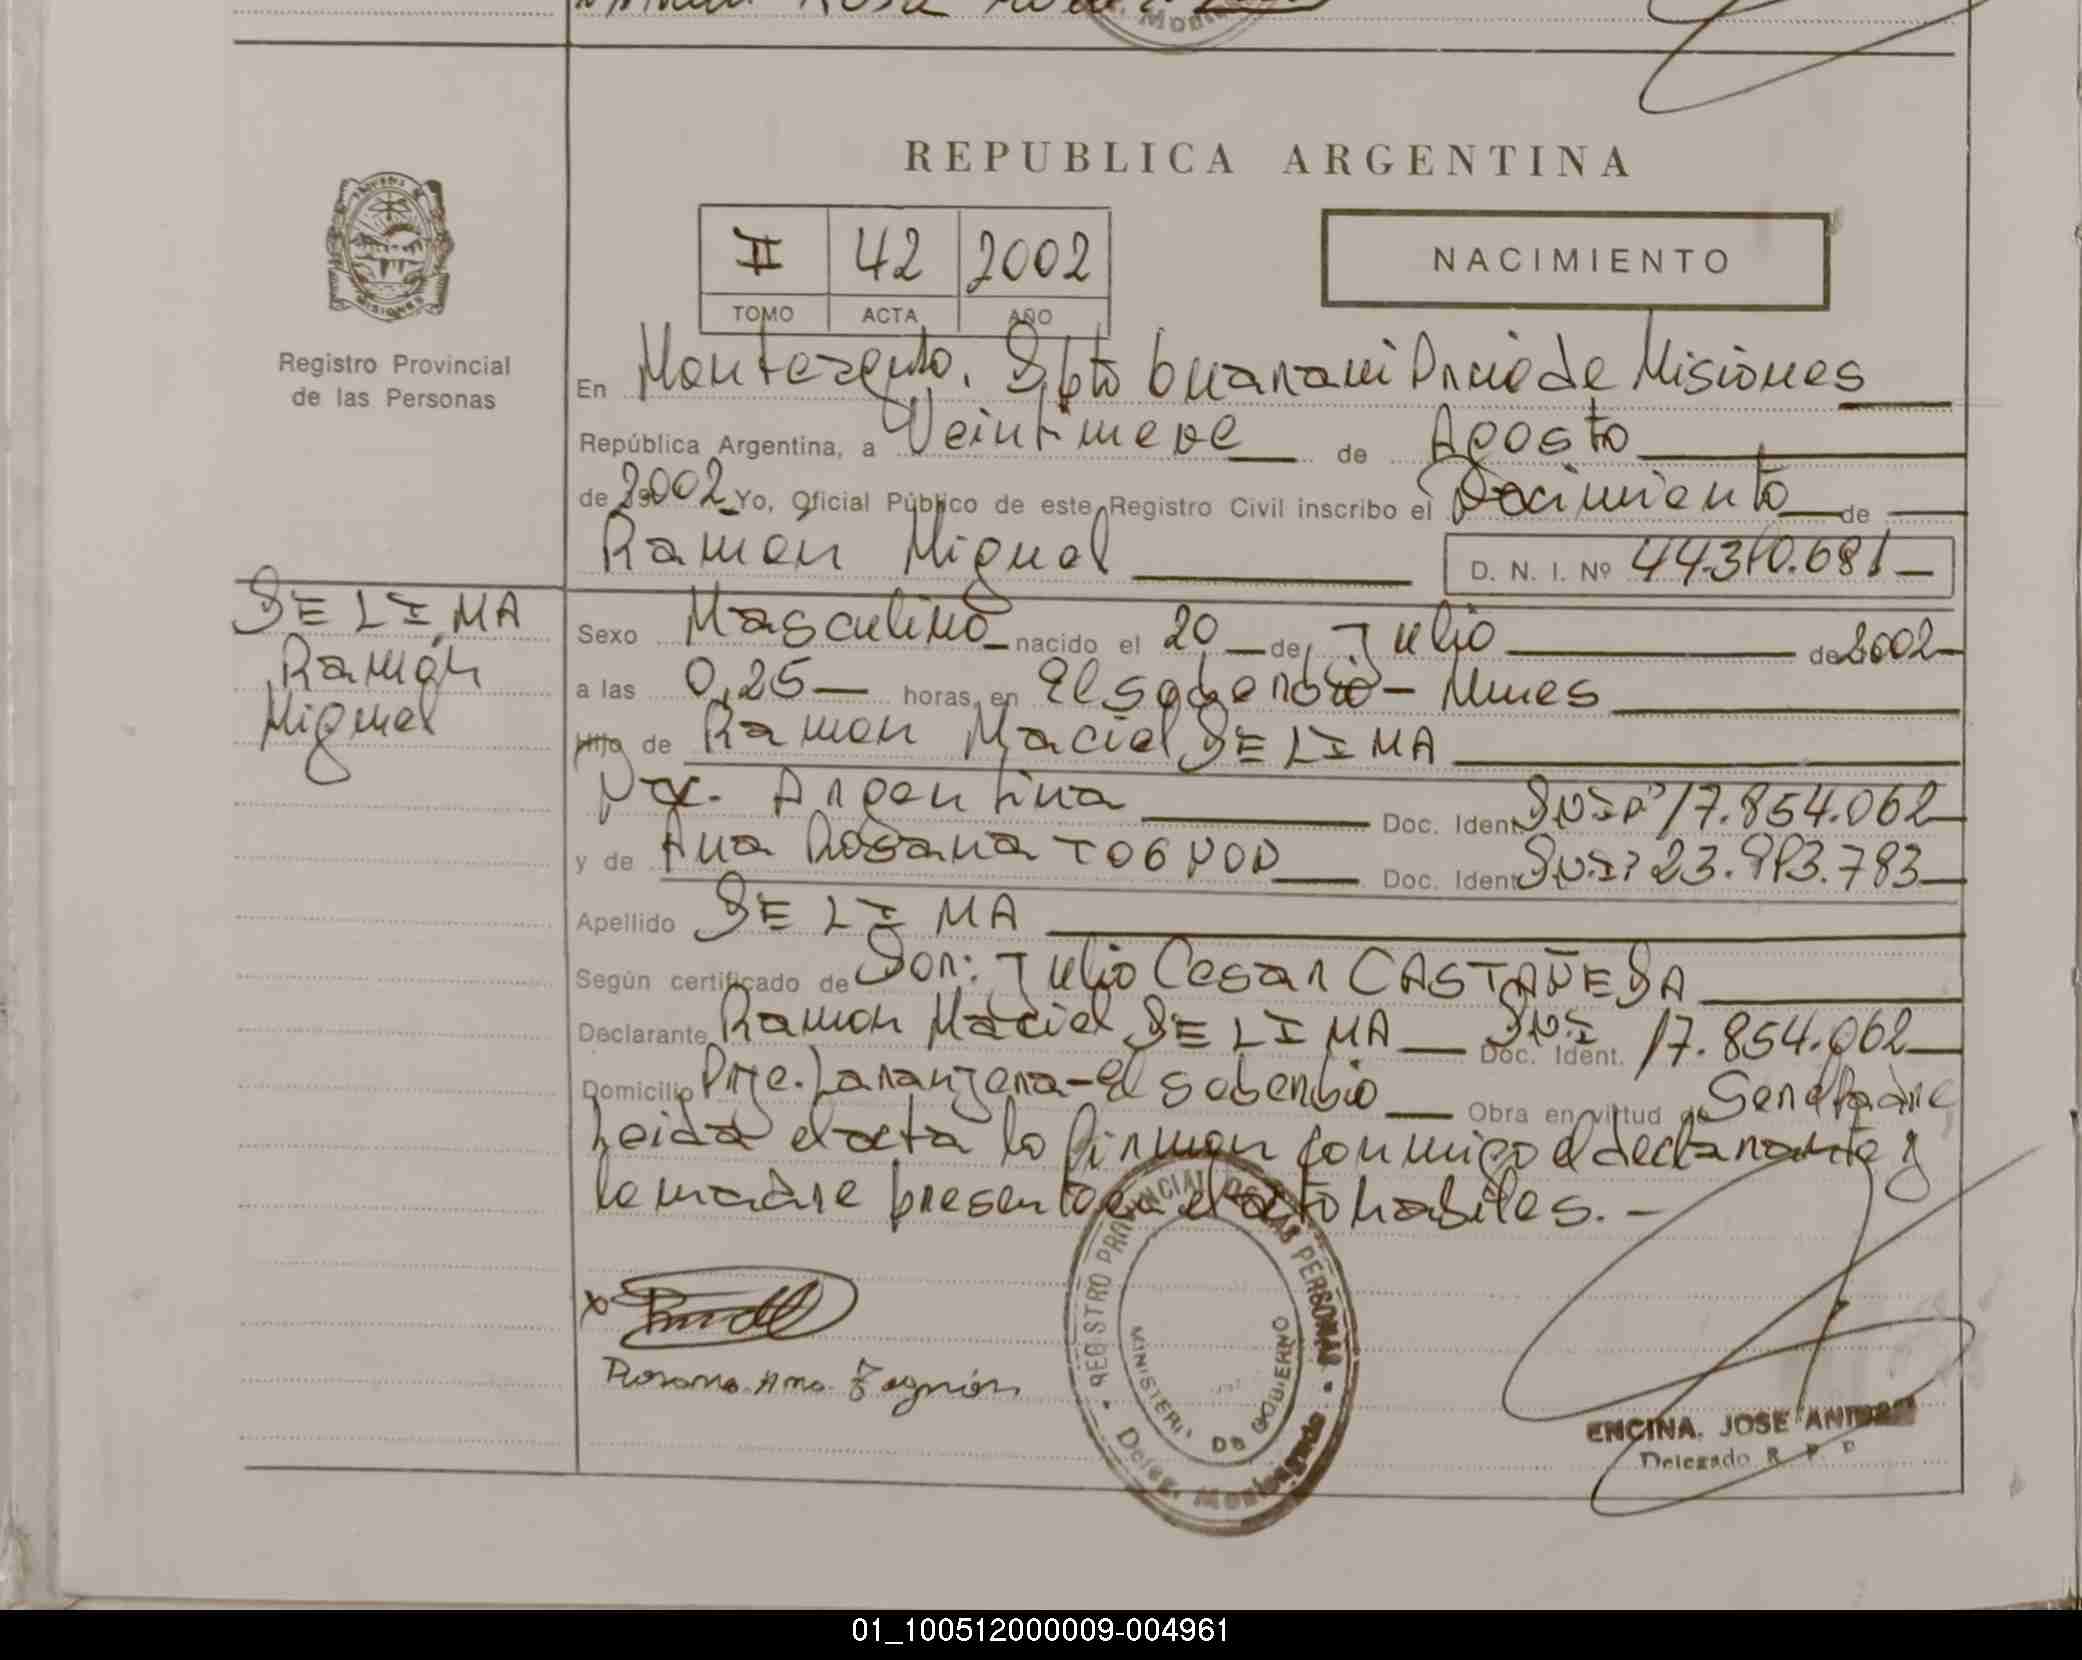 REPUBLICA ARGENTINA
II 42 2002
TOMO ACTA AÑO
NACIMIENTO
MISIONES
Registro Provincial
de las Personas
En Monteagudo. Dpto Guarani Prcia de Misiones
República Argentina, a Veintinueve de Agosto
de 2002 Yo, Oficial Público de este Registro Civil inscribo el Nacimiento de
Ramón Miguel D. N. I. Nº 44.310.681
DE LIMA
Ramón
Miguel
Sexo Masculino nacido el 20 de Julio de 2002
a las 0,25 horas, en El soberbio - Mnes
Hijo de Ramon Maciel DE LIMA
Nac. Argentina Doc. Ident. D.N.I Nº 17.854.062
y de Ana Rosana TOGNON Doc. Ident. D.N.I: 23.993.783
Apellido DE LIMA
Según certificado de Don: Julio Cesar CASTAÑEDA
Declarante Ramon Maciel DE LIMA Doc. Ident. DNI 17.854.062
Domicilio Prje. Laranjera - El soberbio Obra en virtud de Ser el padre
Leida el acta la firman conmigo el declarante y
la madre presente en el acto habiles. -
REGISTRO PROVINCIAL DE LAS PERSONAS
MINISTERIO DE GOBIERNO
Deleg. Monteagudo
Rosana Ana Tognón
ENCINA, JOSE
Delegado R. P. P.
01_100512000009-004961